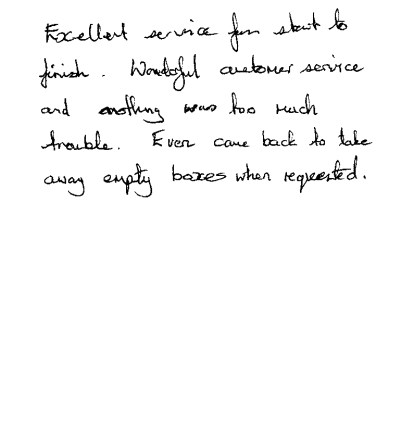 Excellent service from start to
finish. Wonderful customer service
and nothing was too much
trouble. Even came back to take
away empty boxes when requested.